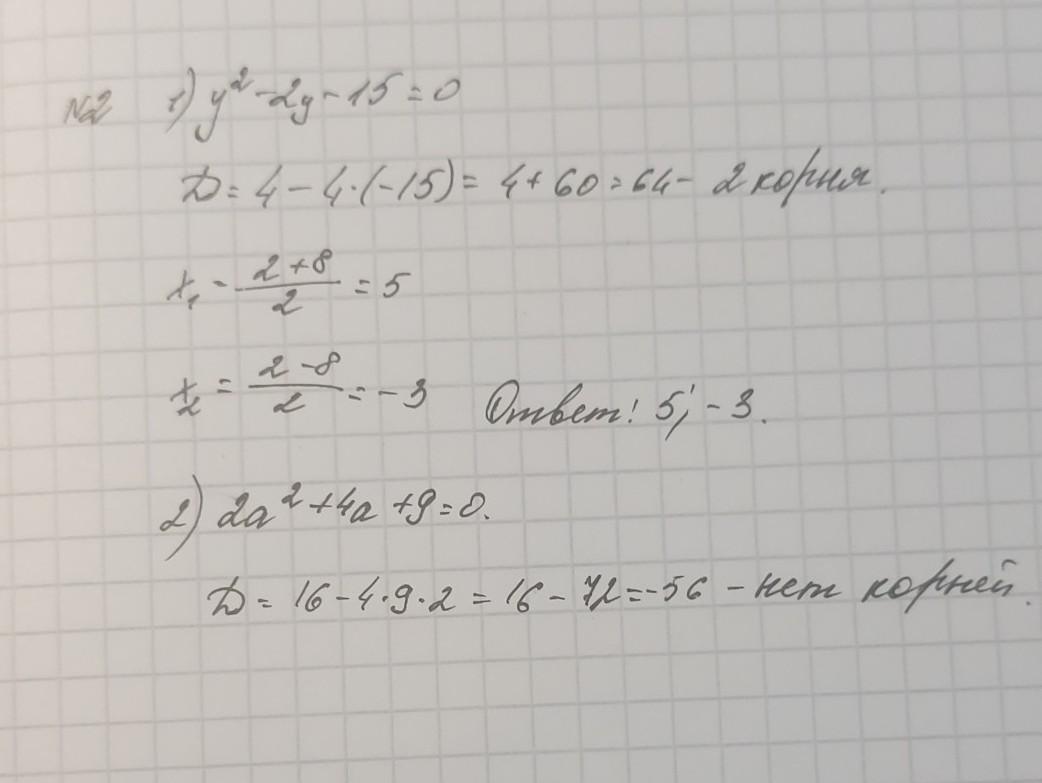 №2 1) y² - 2y - 15 = 0
D = 4 - 4·(-15) = 4 + 60 = 64 - 2 корня.
x₁ = (2+8)/2 = 5
x₂ = (2-8)/2 = -3 Ответ: 5; -3.
2) 2a² + 4a + 9 = 0.
D = 16 - 4·9·2 = 16 - 72 = -56 - нет корней.